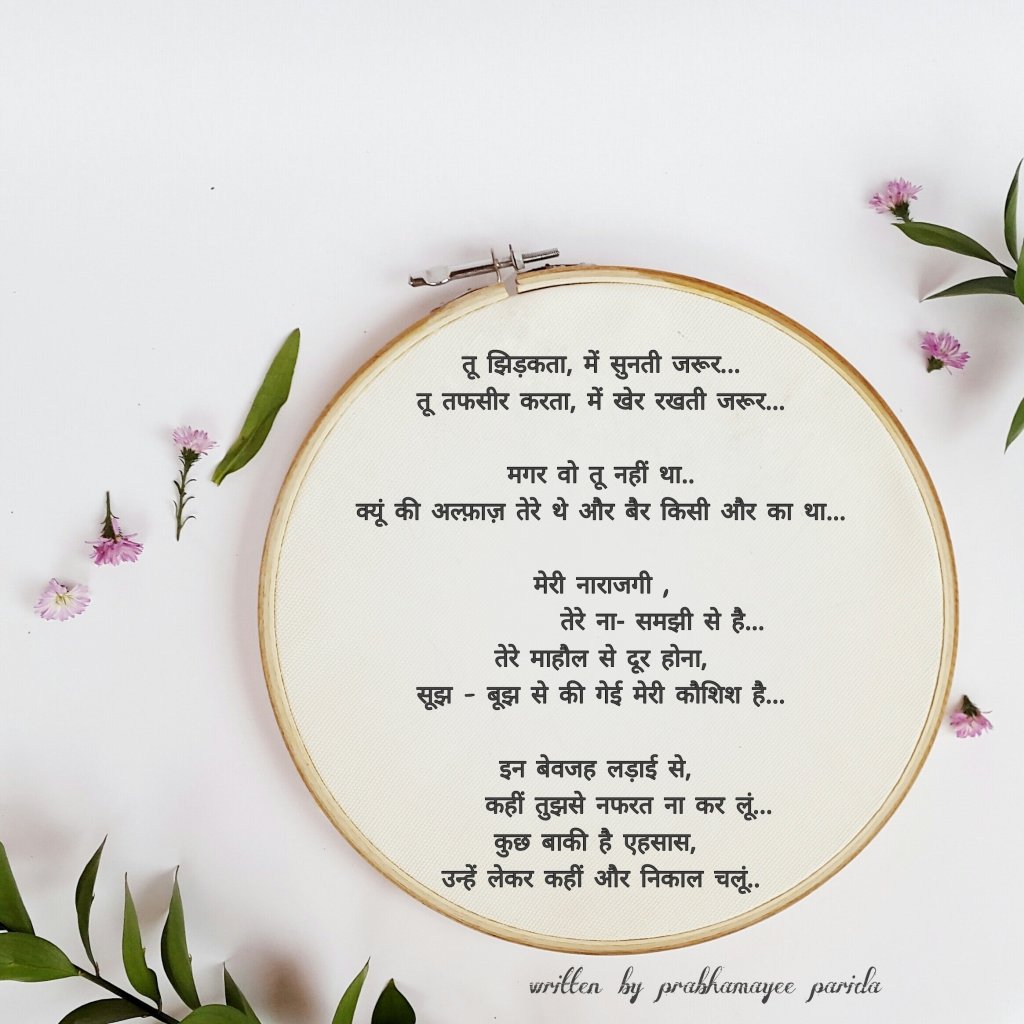 तू झिड़कता, में सुनती जरूर...
तू तफसीर करता, में खेर रखती जरूर...
मगर वो तू नहीं था..
क्यूं की अल्फ़ाज़ तेरे थे और बैर किसी और का था...
मेरी नाराजगी ,
तेरे ना- समझी से है...
तेरे माहौल से दूर होना,
सूझ - बूझ से की गेई मेरी कौशिश है...
इन बेवजह लड़ाई से,
कहीं तुझसे नफरत ना कर लूं...
कुछ बाकी है एहसास,
उन्हें लेकर कहीं और निकाल चलूं..
written by prabhamayee parida